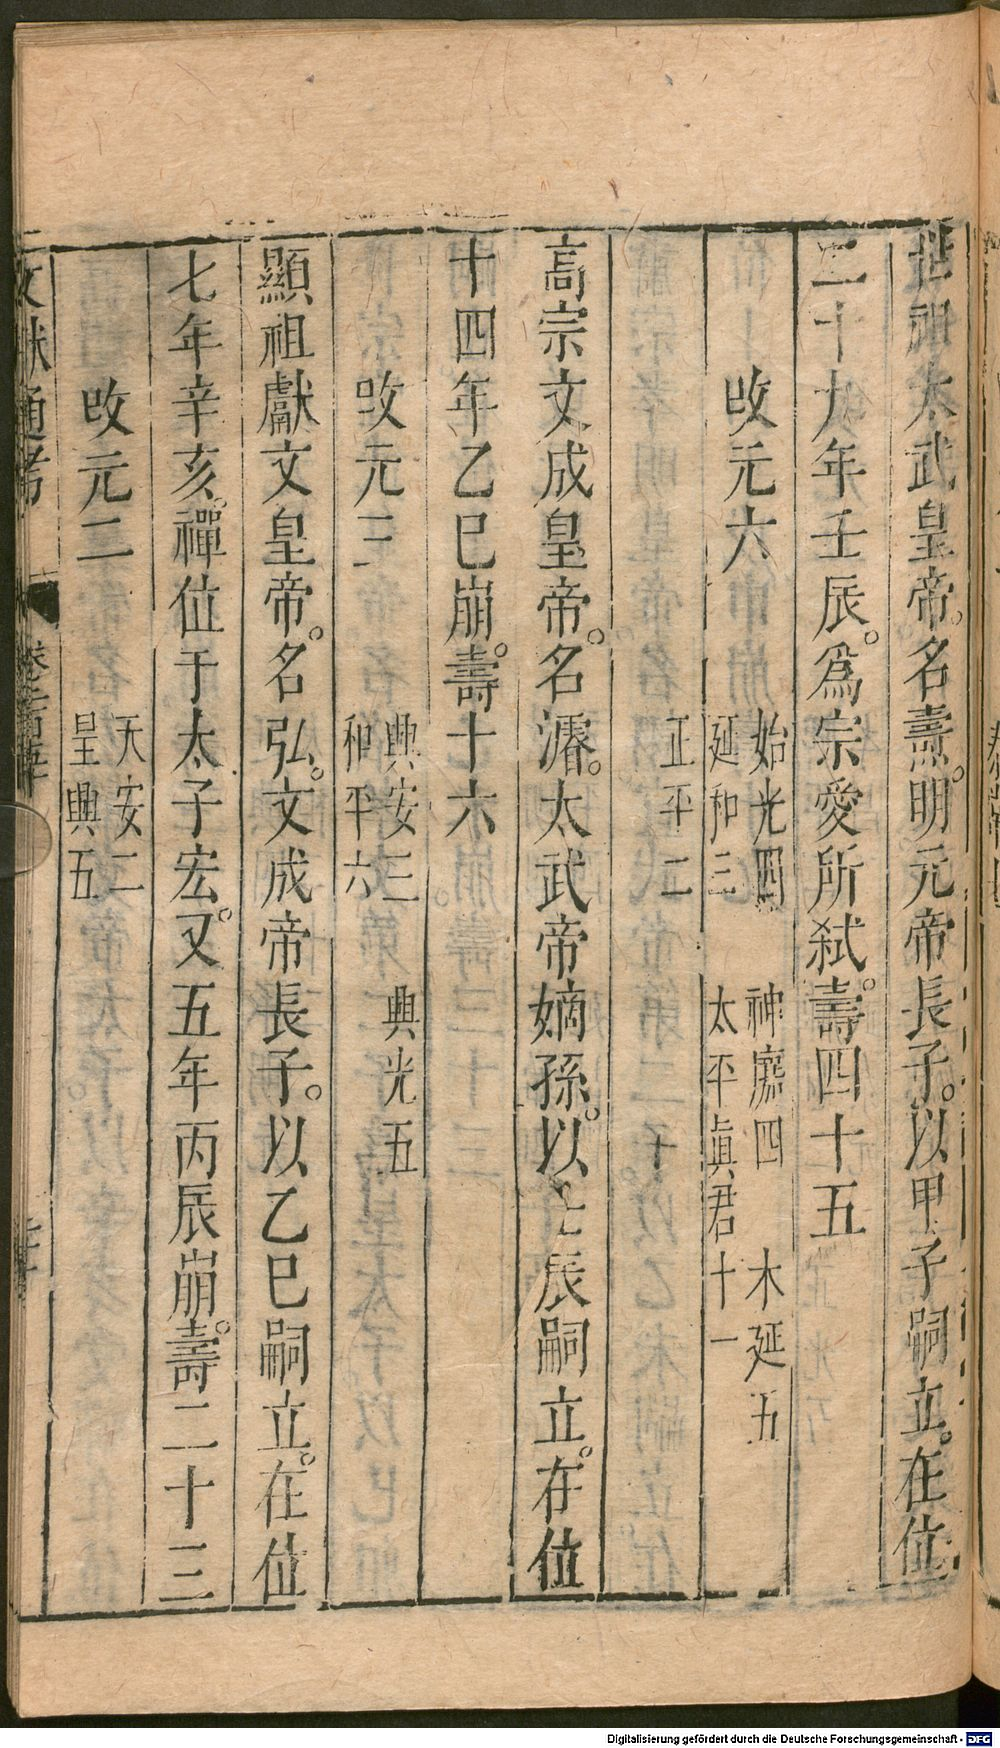 世祖太武皇帝。名燾。明元帝長子。以甲子嗣立。在位
二十九年壬辰。爲宗愛所弑。壽四十五
改元六
始光四　神䴥四　太延五
延和三　太平眞君十一
正平二
高宗文成皇帝。名濬。太武帝嫡孫。以辰嗣立。在位
十四年乙巳崩。壽十六
改元三
興安三　興光五
和平六
顯祖獻文皇帝。名弘。文成帝長子。以乙巳嗣立。在位
七年辛亥。禪位于太子宏。又五年丙辰崩。壽二十三
改元二
天安二
皇興五
文獻通考
Digitalisierung gefördert durch die Deutsche Forschungsgemeinschaft - DFG